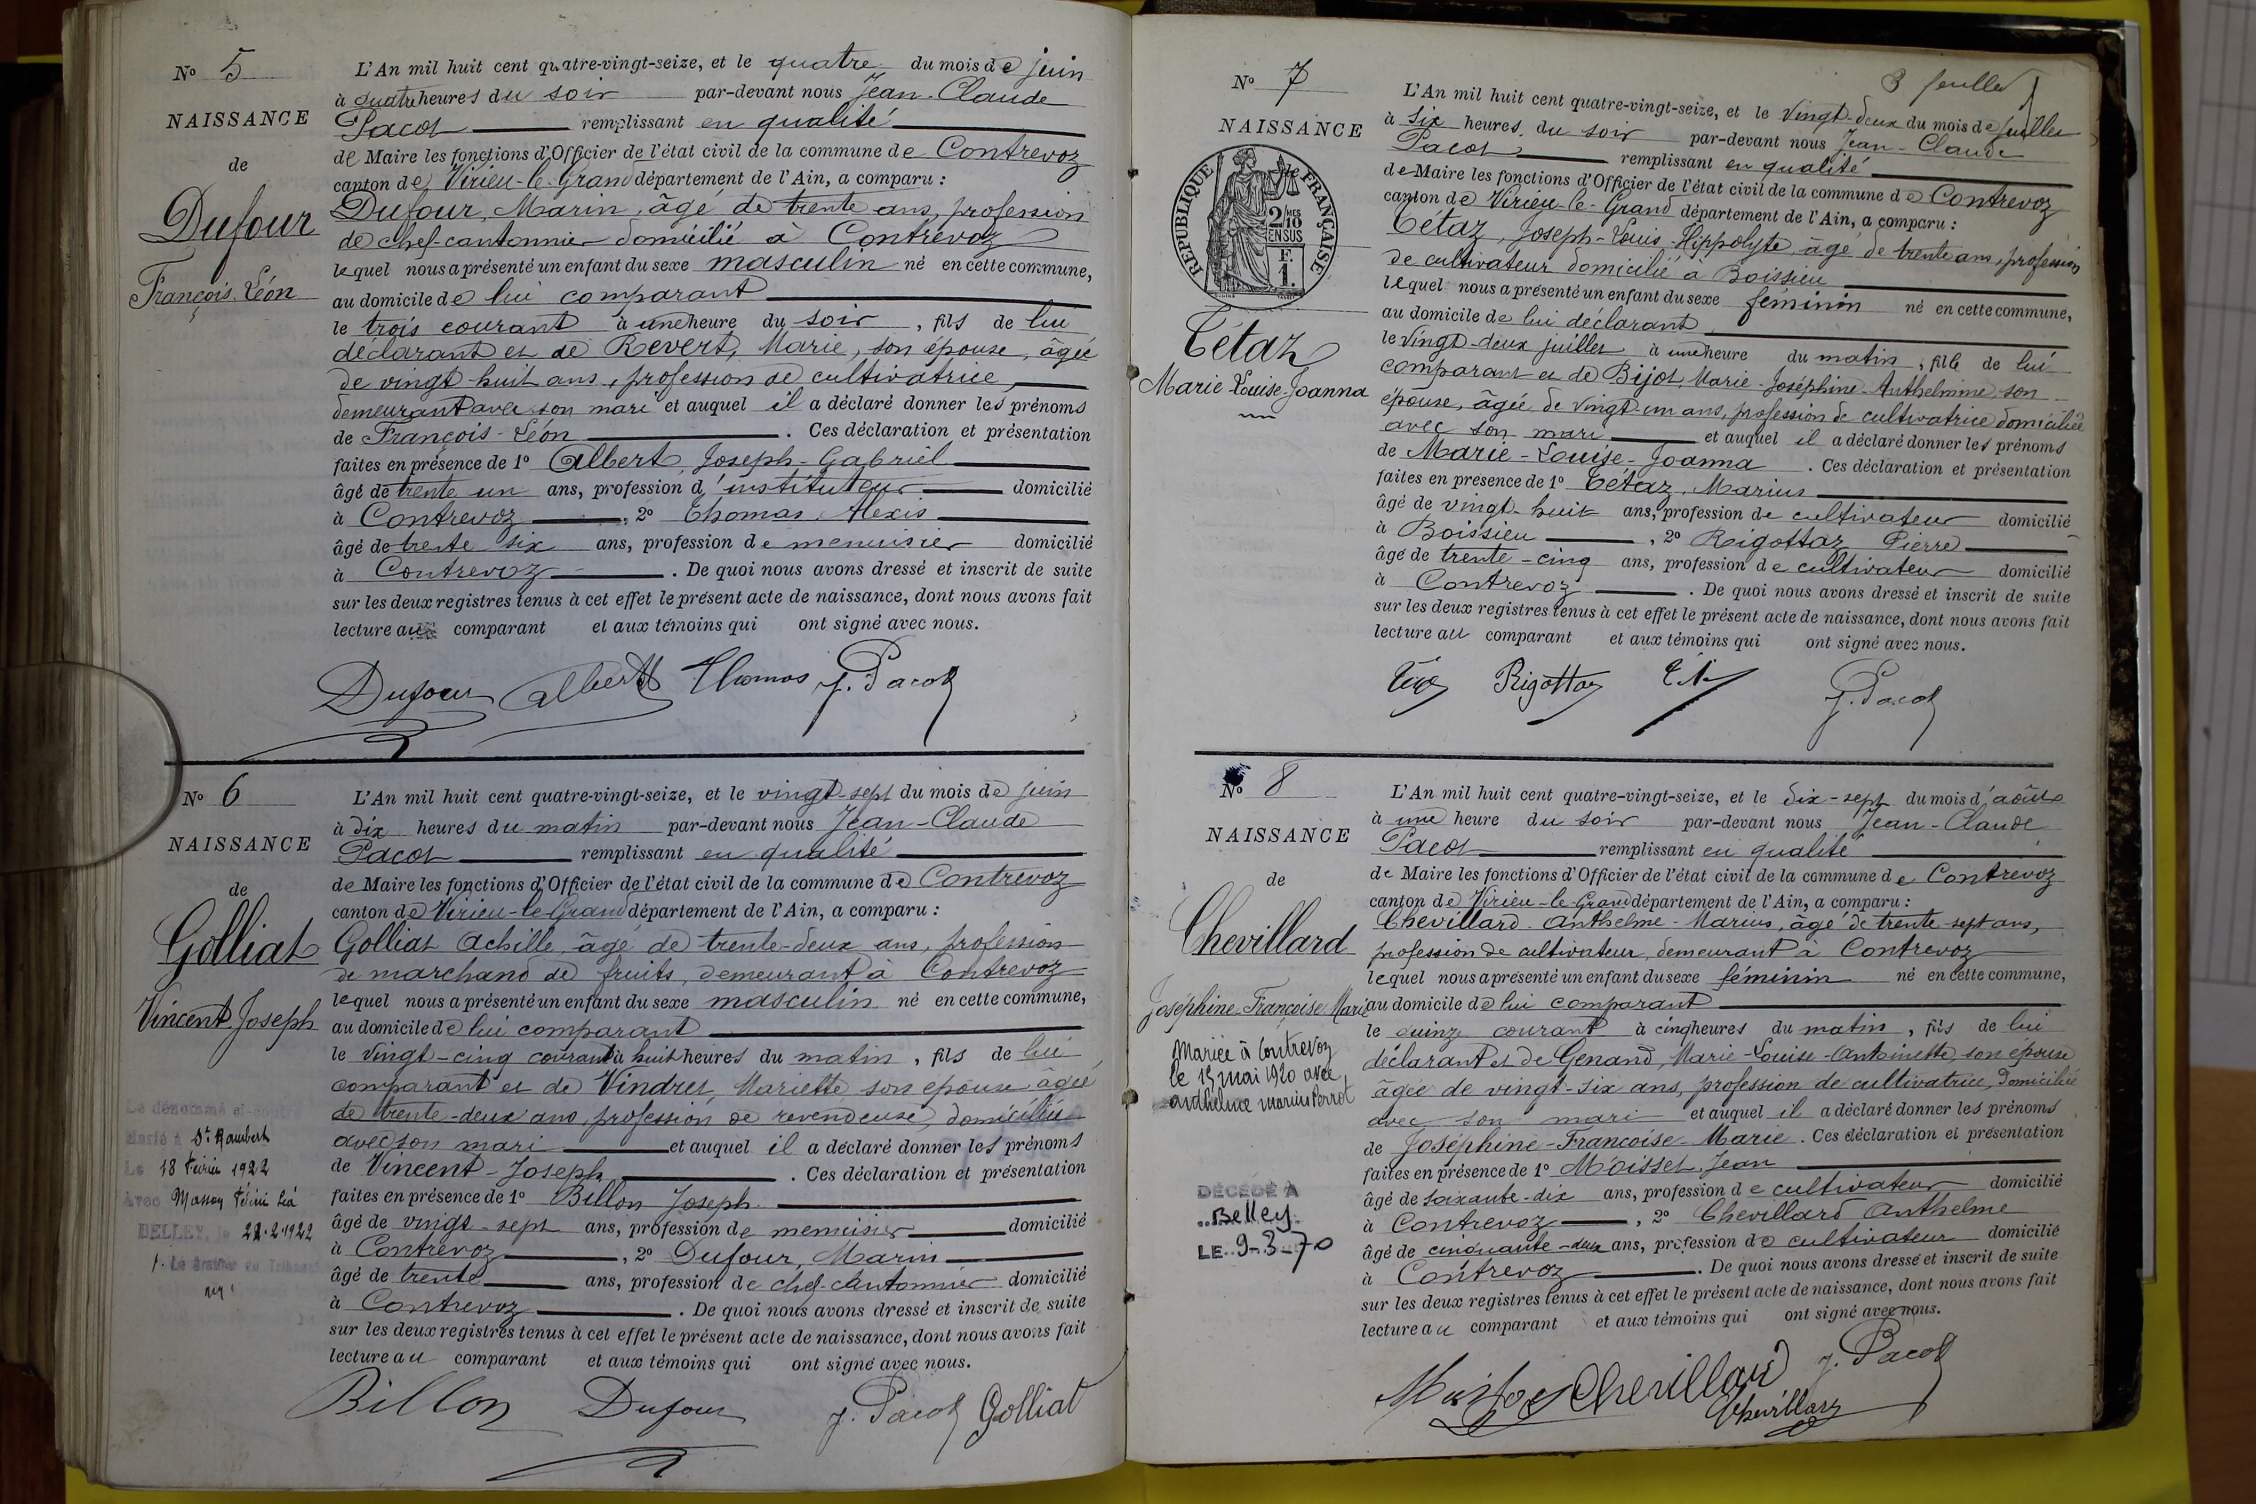 N° 5
NAISSANCE
de
Dufour
François Léon
L'An mil huit cent quatre-vingt-seize, et le quatre du mois de juin
à quatre heures du soir par-devant nous Jean-Claude
Pacot remplissant en qualité
de Maire les fonctions d'Officier de l'état civil de la commune de Contrevoz
canton de Virieu-le-Grand département de l'Ain, a comparu :
Dufour, Marin, âgé de trente ans, profession
de chef-cantonnier domicilié à Contrevoz
lequel nous a présenté un enfant du sexe masculin né en cette commune,
au domicile de lui comparant
le trois courant à une heure du soir, fils de lui
déclarant et de Revert, Marie, son épouse, âgée
de vingt-huit ans, profession de cultivatrice,
demeurant avec son mari et auquel il a déclaré donner les prénoms
de François-Léon. Ces déclaration et présentation
faites en présence de 1° Albert, Joseph-Gabriel
âgé de trente un ans, profession d'instituteur domicilié
à Contrevoz, 2° Thomas, Alexis
âgé de trente six ans, profession de menuisier domicilié
à Contrevoz. De quoi nous avons dressé et inscrit de suite
sur les deux registres tenus à cet effet le présent acte de naissance, dont nous avons fait
lecture au comparant et aux témoins qui ont signé avec nous.
Dufour Albert Thomas J. Pacot
N° 6
NAISSANCE
de
Golliat
Vincent Joseph
Le dénommé ci-contre
Marié à St Rambert
Le 18 Février 1922
Avec Masson
BELLEY, le 22.2.1922
L'An mil huit cent quatre-vingt-seize, et le vingt-sept du mois de juin
à dix heures du matin par-devant nous Jean-Claude
Pacot remplissant en qualité
de Maire les fonctions d'Officier de l'état civil de la commune de Contrevoz
canton de Virieu-le-Grand département de l'Ain, a comparu :
Golliat Achille, âgé de trente-deux ans, profession
de marchand de fruits, demeurant à Contrevoz
lequel nous a présenté un enfant du sexe masculin né en cette commune,
au domicile de lui comparant
le vingt-cinq courant à huit heures du matin, fils de lui
comparant et de Vindret, Mariette, son épouse âgée
de trente-deux ans, profession de revendeuse, domiciliée
avec son mari et auquel il a déclaré donner les prénoms
de Vincent-Joseph. Ces déclaration et présentation
faites en présence de 1° Billon Joseph
âgé de vingt-sept ans, profession de menuisier domicilié
à Contrevoz, 2° Dufour, Marin
âgé de trente ans, profession de chef-cantonnier domicilié
à Contrevoz. De quoi nous avons dressé et inscrit de suite
sur les deux registres tenus à cet effet le présent acte de naissance, dont nous avons fait
lecture au comparant et aux témoins qui ont signé avec nous.
Billon Dufour J. Pacot Golliat
3 feuille
N° 7
NAISSANCE
RÉPUBLIQUE FRANÇAISE
2/10 MES
EN SUS
F.
1.
Tétaz
Marie-Louise-Joanna
L'An mil huit cent quatre-vingt-seize, et le vingt-deux du mois de juillet
à six heures du soir par-devant nous Jean-Claude
Pacot remplissant en qualité
de Maire les fonctions d'Officier de l'état civil de la commune de Contrevoz
canton de Virieu-le-Grand département de l'Ain, a comparu :
Tétaz, Joseph-Louis-Hippolyte, âgé de trente ans, profession
de cultivateur domicilié à Boissieu
lequel nous a présenté un enfant du sexe féminin né en cette commune,
au domicile de lui déclarant
le vingt-deux juillet à une heure du matin, fille de lui
comparant et de Bijot, Marie-Joséphine-Anthelmine son
épouse, âgée de vingt-un ans, profession de cultivatrice domiciliée
avec son mari et auquel il a déclaré donner les prénoms
de Marie-Louise-Joanna. Ces déclaration et présentation
faites en présence de 1° Tétaz, Marius
âgé de vingt-huit ans, profession de cultivateur domicilié
à Boissieu, 2° Rigottaz Pierre
âgé de trente-cinq ans, profession de cultivateur domicilié
à Contrevoz. De quoi nous avons dressé et inscrit de suite
sur les deux registres tenus à cet effet le présent acte de naissance, dont nous avons fait
lecture au comparant et aux témoins qui ont signé avec nous.
Rigottaz J. Pacot
N° 8
NAISSANCE
de
Chevillard
Joséphine-Françoise Marie
Mariée à Contrevoz
le 15 mai 1920 avec
anthelme marius Perrot
DÉCÉDÉ A
Belley
LE 9-3-70
L'An mil huit cent quatre-vingt-seize, et le dix-sept du mois d'août
à une heure du soir par-devant nous Jean-Claude
Pacot remplissant en qualité
de Maire les fonctions d'Officier de l'état civil de la commune de Contrevoz
canton de Virieu-le-Grand département de l'Ain, a comparu :
Chevillard Anthelme-Marius, âgé de trente-sept ans,
profession de cultivateur, demeurant à Contrevoz
lequel nous a présenté un enfant du sexe féminin né en cette commune,
au domicile de lui comparant
le quinze courant à cinq heures du matin, fils de lui
déclarant et de Genand, Marie-Louise-Antoinette son épouse
âgée de vingt-six ans, profession de cultivatrice, domiciliée
avec son mari et auquel il a déclaré donner les prénoms
de Joséphine-Françoise-Marie. Ces déclaration et présentation
faites en présence de 1° Moisset, Jean
âgé de soixante-dix ans, profession de cultivateur domicilié
à Contrevoz, 2° Chevillard Anthelme
âgé de cinquante-deux ans, profession de cultivateur domicilié
à Contrevoz. De quoi nous avons dressé et inscrit de suite
sur les deux registres tenus à cet effet le présent acte de naissance, dont nous avons fait
lecture au comparant et aux témoins qui ont signé avec nous.
Chevillard J. Pacot
Chevillard